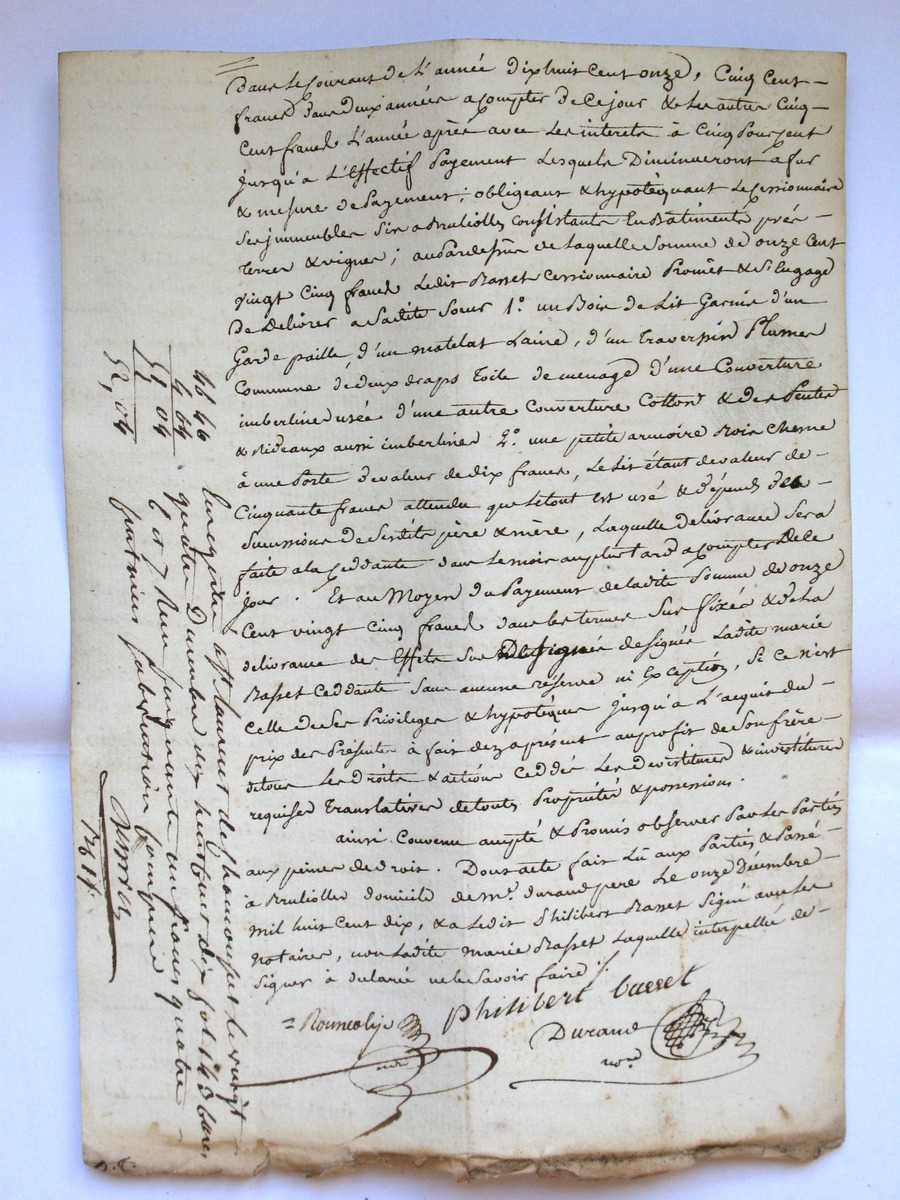 Dans le Courant de L'année dixhuit cent onze, Cinq Cent-
francs dans deux années a compter de ce jour & les autres Cinq-
Cent francs L'année après avec les interets à Cinq pour cent
jusqu'a L'Effectif Payement lesquels Diminueront à fur
& mesure de Payement; obligeant & hypotèquant le Cessionnaire
ses immeubles sis a Brulliolles consistants En Bâtiments prés-
terres & vignes; au Pardessus de laquelle Somme de onze cent
vingt Cinq francs Ledit Basset Cessionnaire Promet & S'Engage
De Delivrer a Sadite Soeur 1º. un Bois de Lit Garnie d'un
Garde paille, d'un matelat Laine, d'un Traversin Plumes
Commune de deux draps Toile de menage d'une Couverture
imberline usée d'une autre Couverture Cotton & des Pentes
& Rideaux aussi imberline 2º. une petite armoire Bois Chene
à une Porte de valeur de dix francs, Le Lit étant de valeur de-
Cinquante francs attendu que le tout est usé & dépend des-
Successions de Sesdits père & mère, Laquelle delivrance Sera
faite a la Ceddante dans le mois au plus tard a compter de Ce
jour. Et au Moyen du Payement de ladite Somme de onze
Cent vingt Cinq francs dans les termes Sus fixés & de la
delivrance des Effets Sus désignés Ladite marie
Basset Ceddante Sans aucune réserve ni Exception, Si ce n'est
Celle de Ses Privileges & hypotèques jusqu'à L'acquit du
prix des Présentes à fait dez a présent au profit de Son frère-
de tous Les Droits & actions Ceddés Les devestitures & investitures
requises Translatives de toutes Propriétés & possessions.
ainsi Convenu accepté & Promis observer Par Les Parties
aux peines de droit. Dont acte fait Lû aux Parties & Passé-
à Brulliolle domicile de Me. Durand pere Le onze Décembre-
Mil huit Cent dix, & a Ledit Philibert Basset Signé avec les
Notaires, non Ladite Marie Basset Laquelle interpellée de-
Signer à déclaré ne le Savoir faire
philibert basset
Durand
nore.
Enregistré à St Laurent de Chamousset le vingt
quatre Décembre mil huit cent dix fol 143
et Reçu cinquante un francs quatre
centimes subvention comprise
46 40
4 64
51 04
51,04